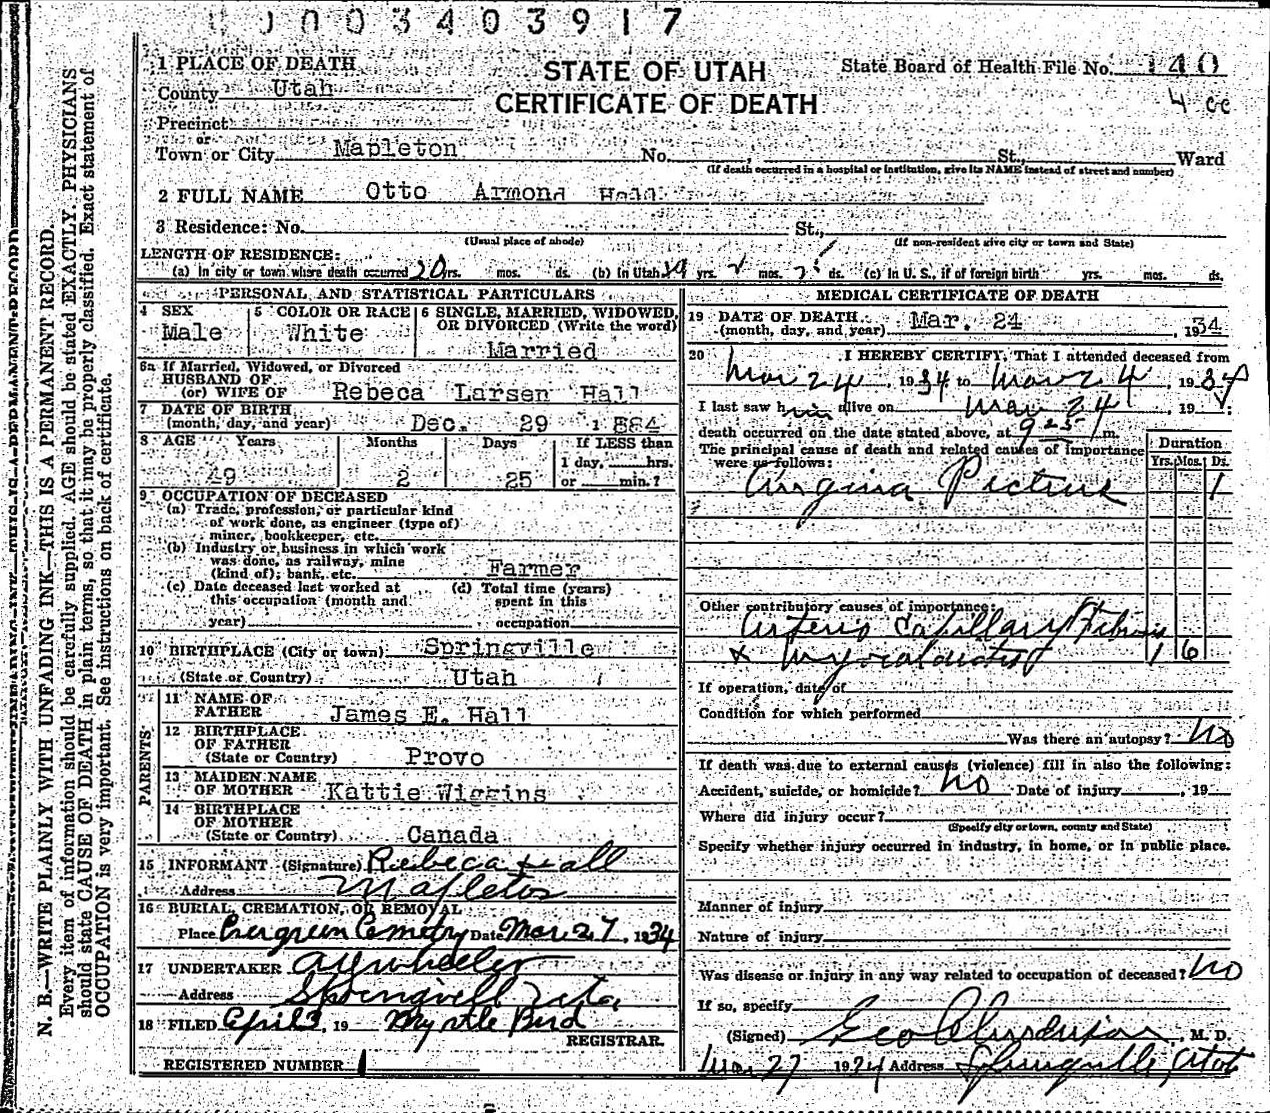 003403917
STATE OF UTAH
CERTIFICATE OF DEATH
State Board of Health File No. 140
4 cc
1 PLACE OF DEATH
County Utah
Precinct
or
Town or City Mapleton No. St., Ward
(If death occurred in a hospital or institution, give its NAME instead of street and number)
2 FULL NAME Otto Armond Hall
3 Residence: No. St.,
(Usual place of abode) (If non-resident give city or town and State)
LENGTH OF RESIDENCE:
(a) In city or town where death occurred 20 yrs. mos. ds. (b) In Utah 49 yrs. 2 mos. 25 ds. (c) In U. S., if of foreign birth yrs. mos. ds.
PERSONAL AND STATISTICAL PARTICULARS
4 SEX
Male
5 COLOR OR RACE
White
6 SINGLE, MARRIED, WIDOWED,
OR DIVORCED (Write the word)
Married
6a If Married, Widowed, or Divorced
HUSBAND OF
(or) WIFE OF Rebeca Larsen Hall
7 DATE OF BIRTH
(month, day, and year) Dec. 29 1884
8 AGE Years Months Days If LESS than
1 day, hrs.
49 2 25 or min.?
9 OCCUPATION OF DECEASED
(a) Trade, profession, or particular kind
of work done, as engineer (type of)
miner, bookkeeper, etc.
(b) Industry or business in which work
was done, as railway, mine
(kind of); bank, etc. Farmer
(c) Date deceased last worked at
this occupation (month and
year)
(d) Total time (years)
spent in this
occupation
10 BIRTHPLACE (City or town) Springville
(State or Country) Utah
PARENTS
11 NAME OF
FATHER James E. Hall
12 BIRTHPLACE
OF FATHER
(State or Country) Provo
13 MAIDEN NAME
OF MOTHER Kattie Wiggins
14 BIRTHPLACE
OF MOTHER
(State or Country) Canada
15 INFORMANT (Signature) Rebeca Hall
Address Mapleton
16 BURIAL, CREMATION, OR REMOVAL
Place Evergreen Cemetry Date Mar 27, 1934
17 UNDERTAKER A Y Wheeler
Address Springville Utah
18 FILED April 3, 19 Myrtle Bird
REGISTRAR.
REGISTERED NUMBER 1
MEDICAL CERTIFICATE OF DEATH
19 DATE OF DEATH
(month, day, and year) Mar. 24, 1934
20 I HEREBY CERTIFY, That I attended deceased from
Mar 24, 1934 to Mar 24, 1934
I last saw him alive on Mar 24, 19 :
death occurred on the date stated above, at 9 25 m.
The principal cause of death and related causes of importance
were as follows:
Duration
Yrs. Mos. Ds.
Angina Pectoris 1
Other contributory causes of importance:
Arterio Capillary Fibrosis
& Myocarditis 1 6
If operation, date of
Condition for which performed
Was there an autopsy? No
If death was due to external causes (violence) fill in also the following:
Accident, suicide, or homicide? No Date of injury , 19
Where did injury occur?
(Specify city or town, county and State)
Specify whether injury occurred in industry, in home, or in public place.
Manner of injury
Nature of injury
Was disease or injury in any way related to occupation of deceased? No
If so, specify
(Signed) Geo , M. D.
Mar 27 1934 Address Springville, Utah
N. B.—WRITE PLAINLY WITH UNFADING INK—THIS IS A PERMANENT RECORD.
Every item of information should be carefully supplied. AGE should be stated EXACTLY. PHYSICIANS
should state CAUSE OF DEATH in plain terms, so that it may be properly classified. Exact statement of
OCCUPATION is very important. See instructions on back of certificate.